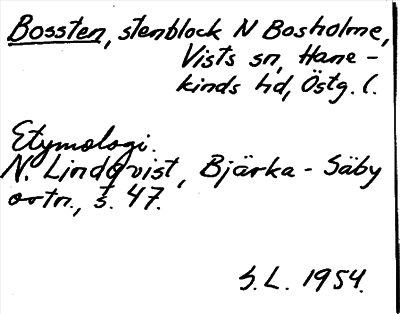 Bossten, stenblock N Bosholme,
Vists sn, Hane-
kinds hd, Östg. l.
Etymologi.
N. Lindqvist, Bjärka-Säby
ortn., s. 47.
S.L. 1954.